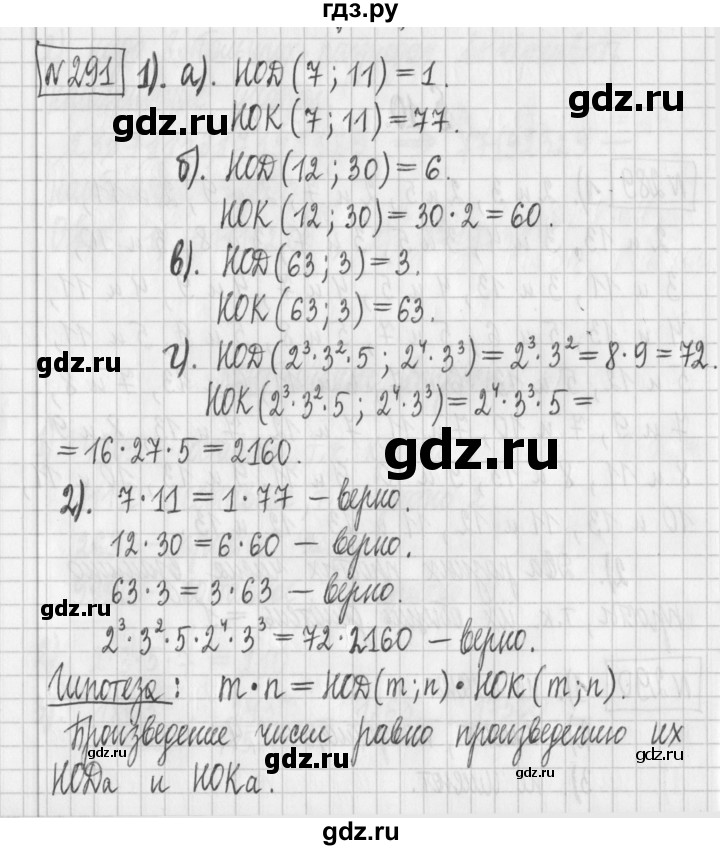 гдз.ру
№291 1). а). НОД(7; 11) = 1.
gdz.ru
НОК(7; 11) = 77.
gdz.ru
б). НОД(12; 30) = 6.
НОК(12; 30) = 30·2 = 60.
в). НОД(63; 3) = 3.
НОК(63; 3) = 63.
gdz.ru
г). НОД(2³·3²·5; 2⁴·3³) = 2³·3² = 8·9 = 72.
НОК(2³·3²·5; 2⁴·3³) = 2⁴·3³·5 =
= 16·27·5 = 2160.
gdz.ru
2). 7·11 = 1·77 – верно.
12·30 = 6·60 – верно.
63·3 = 3·63 – верно.
gdz.ru
2³·3²·5·2⁴·3³ = 72·2160 – верно.
Гипотеза: m·n = НОД(m; n)·НОК(m; n).
Произведение чисел равно произведению их
gdz.ru
gdz.ru
gdz.ru
НОДа и НОКа.
gdz.ru
gdz.ru